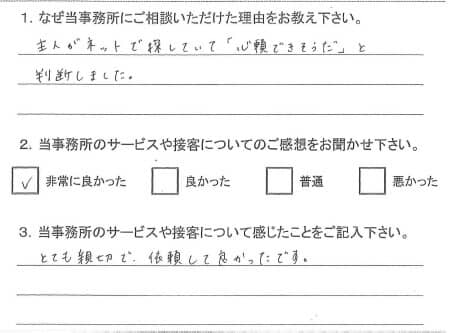 1. なぜ当事務所にご相談いただけた理由をお教え下さい。
主人がネットで探していて「心頼できそうだ」と
判断しました。
2. 当事務所のサービスや接客についてのご感想をお聞かせ下さい。
✓ 非常に良かった 良かった 普通 悪かった
3. 当事務所のサービスや接客について感じたことをご記入下さい。
とても親切で、依頼して良かったです。